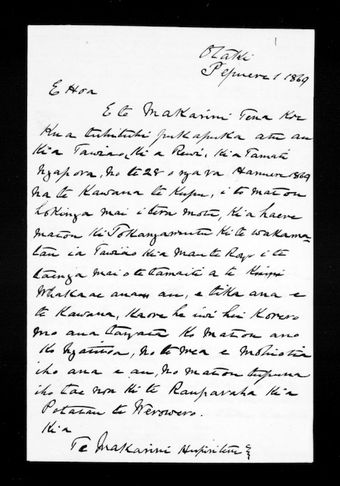 Otaki
Pepuere 1 1869
E Hoa
E te Makarini Tena koe
Kua tuhituhi pukapuka atu au
kia Tawiao, kia Rewi, kia Tamati
Ngapora, No te 28 o nga ra Hanuere 1869
na te Kawana te kupu, i te matou
hokinga mai i tera motu, kia haere
matou ki Tokangamutu ki te wakama-
tau ia Tawiao kia mau te Rongo i te
taenga mai o te tamaiti a te Kuini
Whakaae ana au, e tika ana e
te Kawana, kaore he iwi hei korero
mo ana tangata ko matou ano
ko Ngatitoa, No te mea e mohiotia
iho ana e au, No matou tupuna
iho tae noa ki te Rauparaha kia
Potatau te Werowero.
Kia
Te Makarini